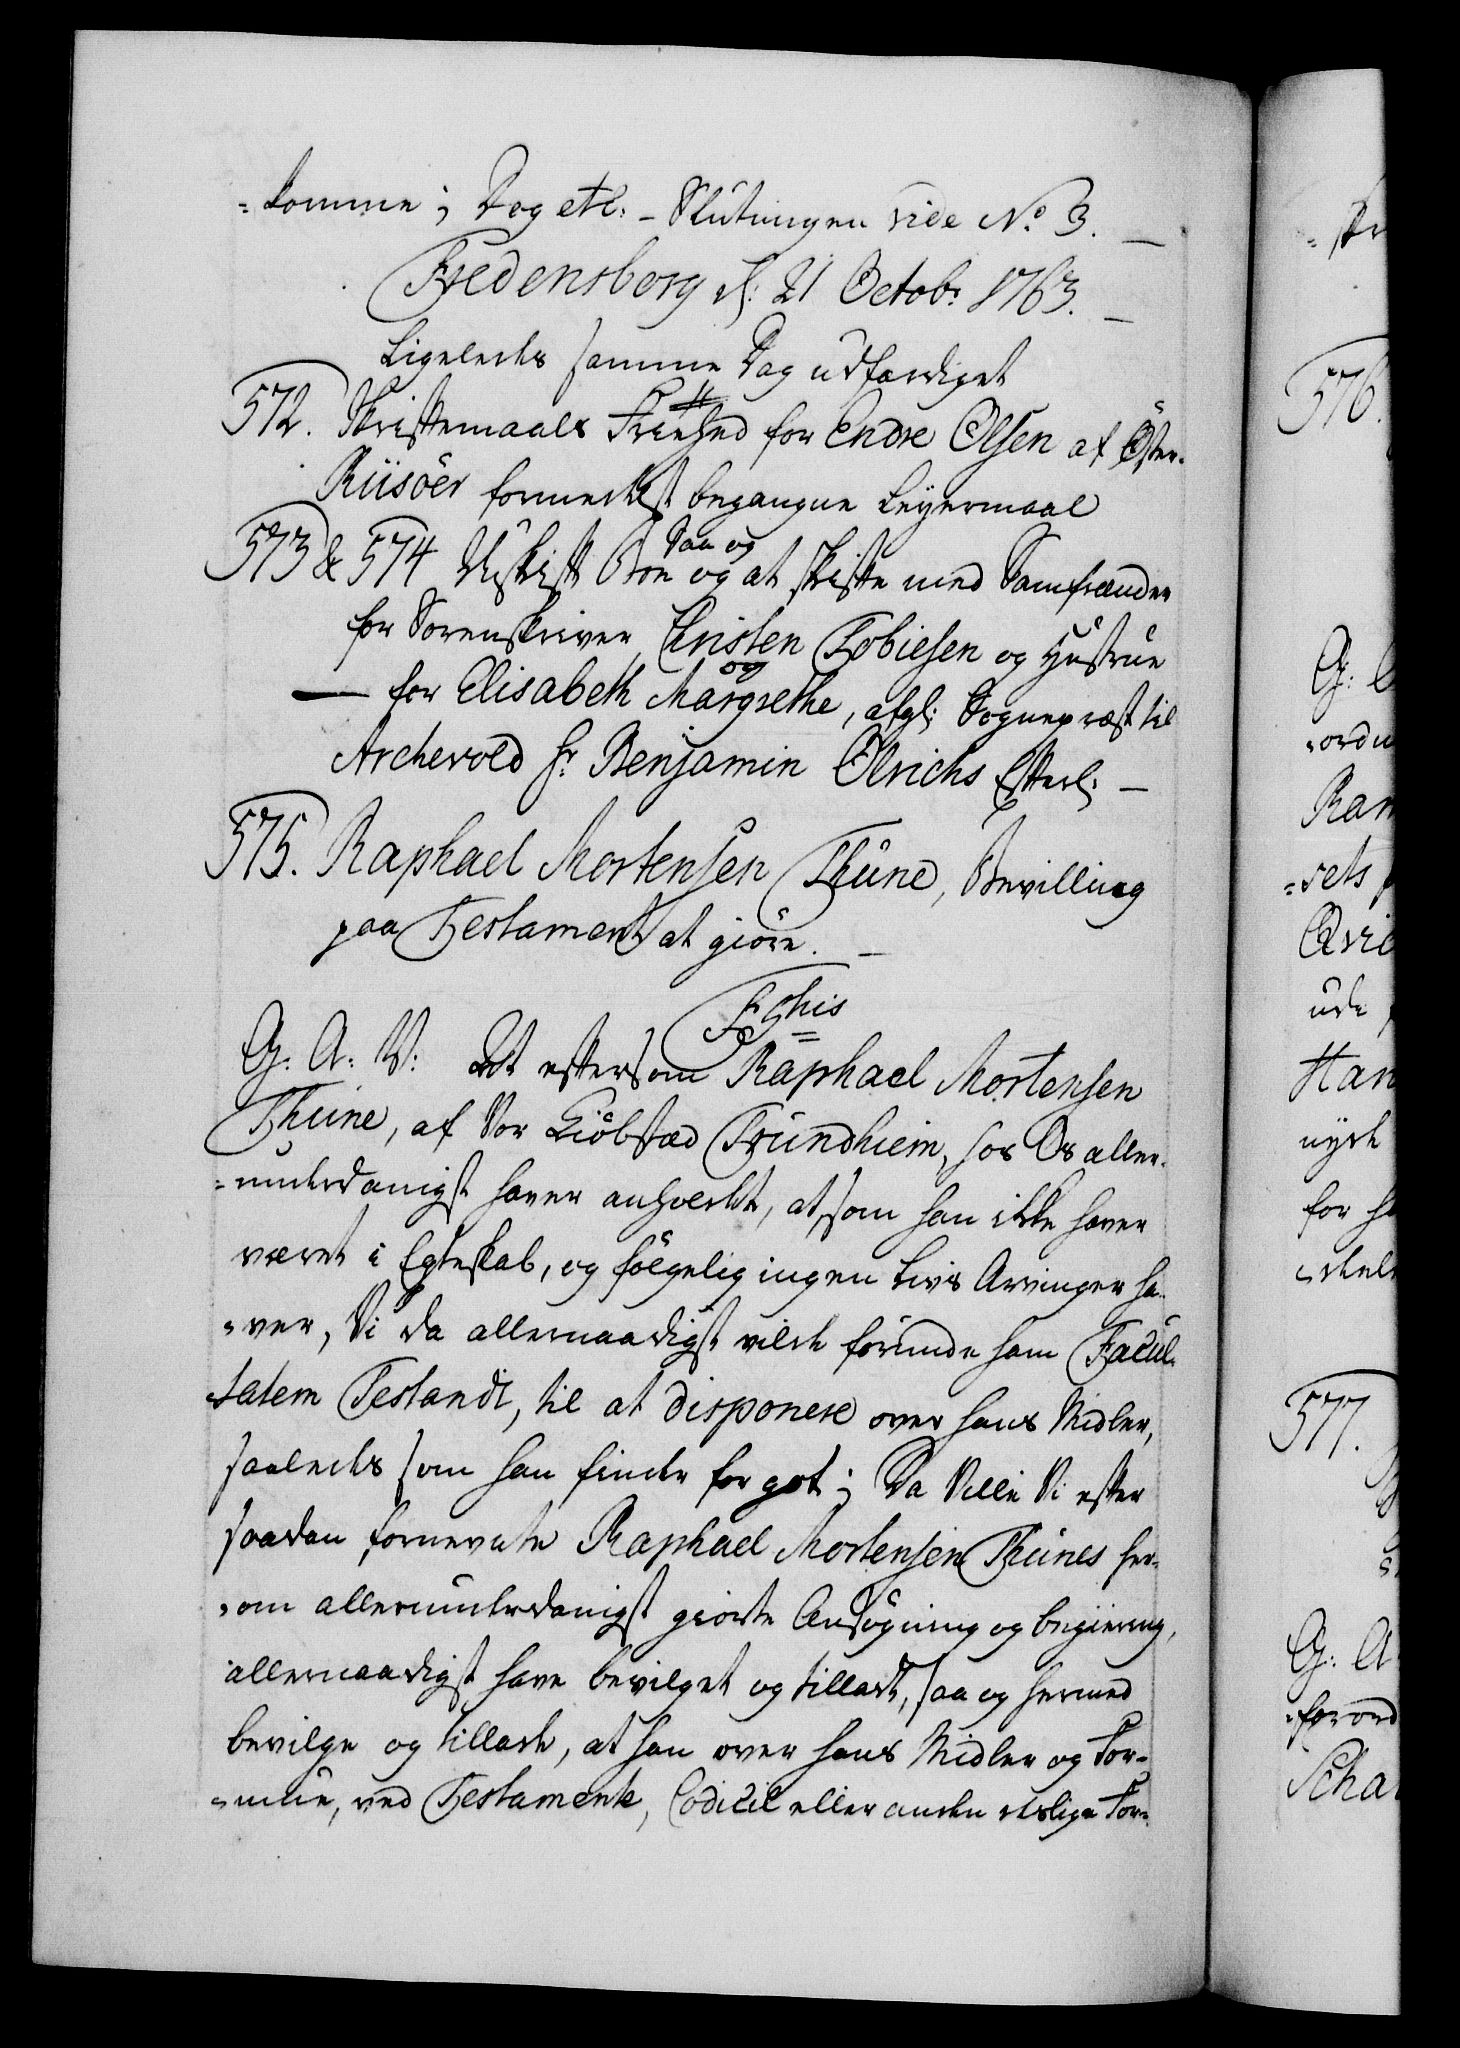 =komme; Dog etc: - Slutningen vide No. 3. -
Fredensborg d: 21 Octobr 1763. -
Ligeledes samme Dag udfærdiget
572. Skriftemaals Friehed for Endre Olsen af Öster-
Riisöer formedelst begangne Leyermaal
573 & 574 Uskift Boe saa og at skifte med Samfrænder
for Sorenskriver Christen Tobiesen og Hustrue
- og for Elisabeth Margrethe, afgl: Sognepræst til
Archevold Hr Benjamin Olrichs Efterl: -
575. Raphael Mortensen Thüne, Bevilling
paa Testament at giöre. -
Gthis
G: A: V: At eftersom Raphael Mortensen
Thüne, af Vor Kiöbstæd Trundhiem, hos Os aller-
=underdanigst haver anholdet, at, som han ikke haver
været i Egteskab, og fölgelig ingen Livs Arvinger ha-
=ver, Vi da allernaadigst vilde forunde ham Facul-
tatem Testandi, til at disponere over hans Midler,
saaledes som han finder for got; Da Ville Vi efter
saadan fornevnte Raphael Mortensen Thünes her-
=om allerunderdanigst giorte Ansögning og begiering,
allernaadigst have bevilget og tilladt, saa og hermed
bevilge og tillade, at han over hans Midler og For-
=mue, ved Testamente, Codicil eller anden retslige For-
576.
G:
=ordn
Ran
=rets
ude
Han
nyde
for
577.
G: A
=forord
Scha